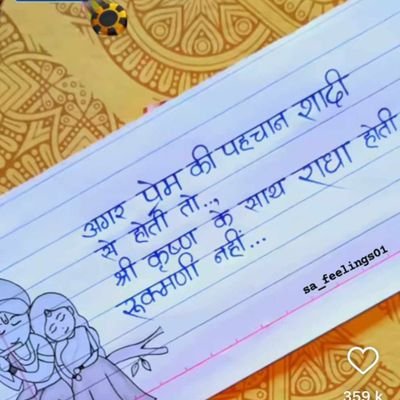 अगर प्रेम की पहचान शादी
से होती तो..,
श्री कृष्ण के साथ राधा होती
रूक्मणी नहीं...
sa_feelings01
359 k